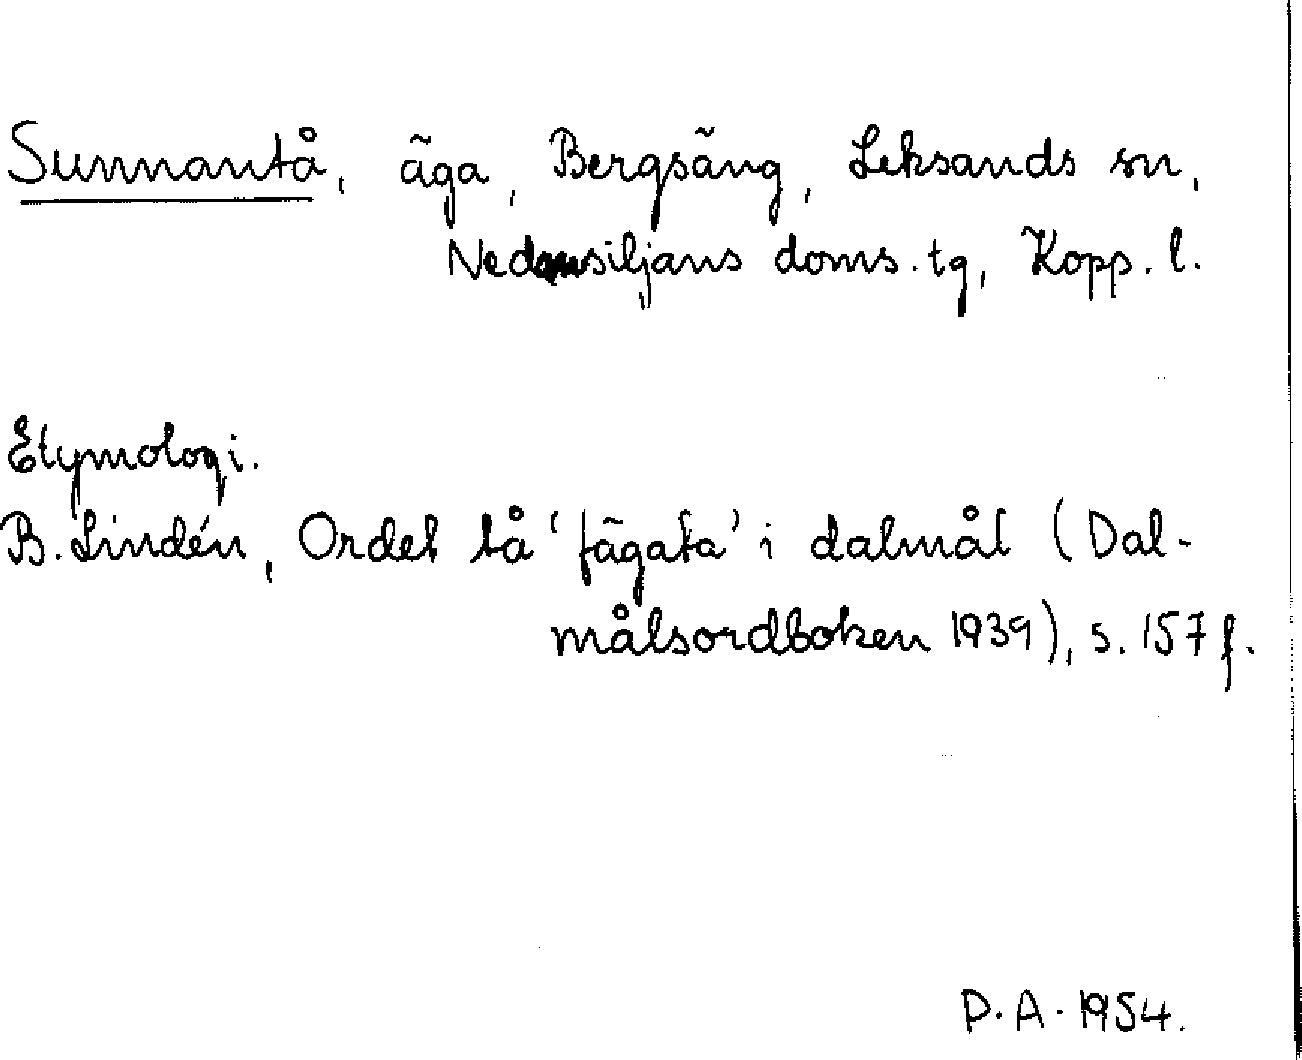 Sunnantå, äga, Bergsäng, Leksands sn,
Nedansiljans doms.tg, Kopp. l.
Etymologi.
B. Lindén, Ordet tå 'fägata' i dalmål (Dal-
målsordboken 1939), s. 157 f.
P.A. 1954.